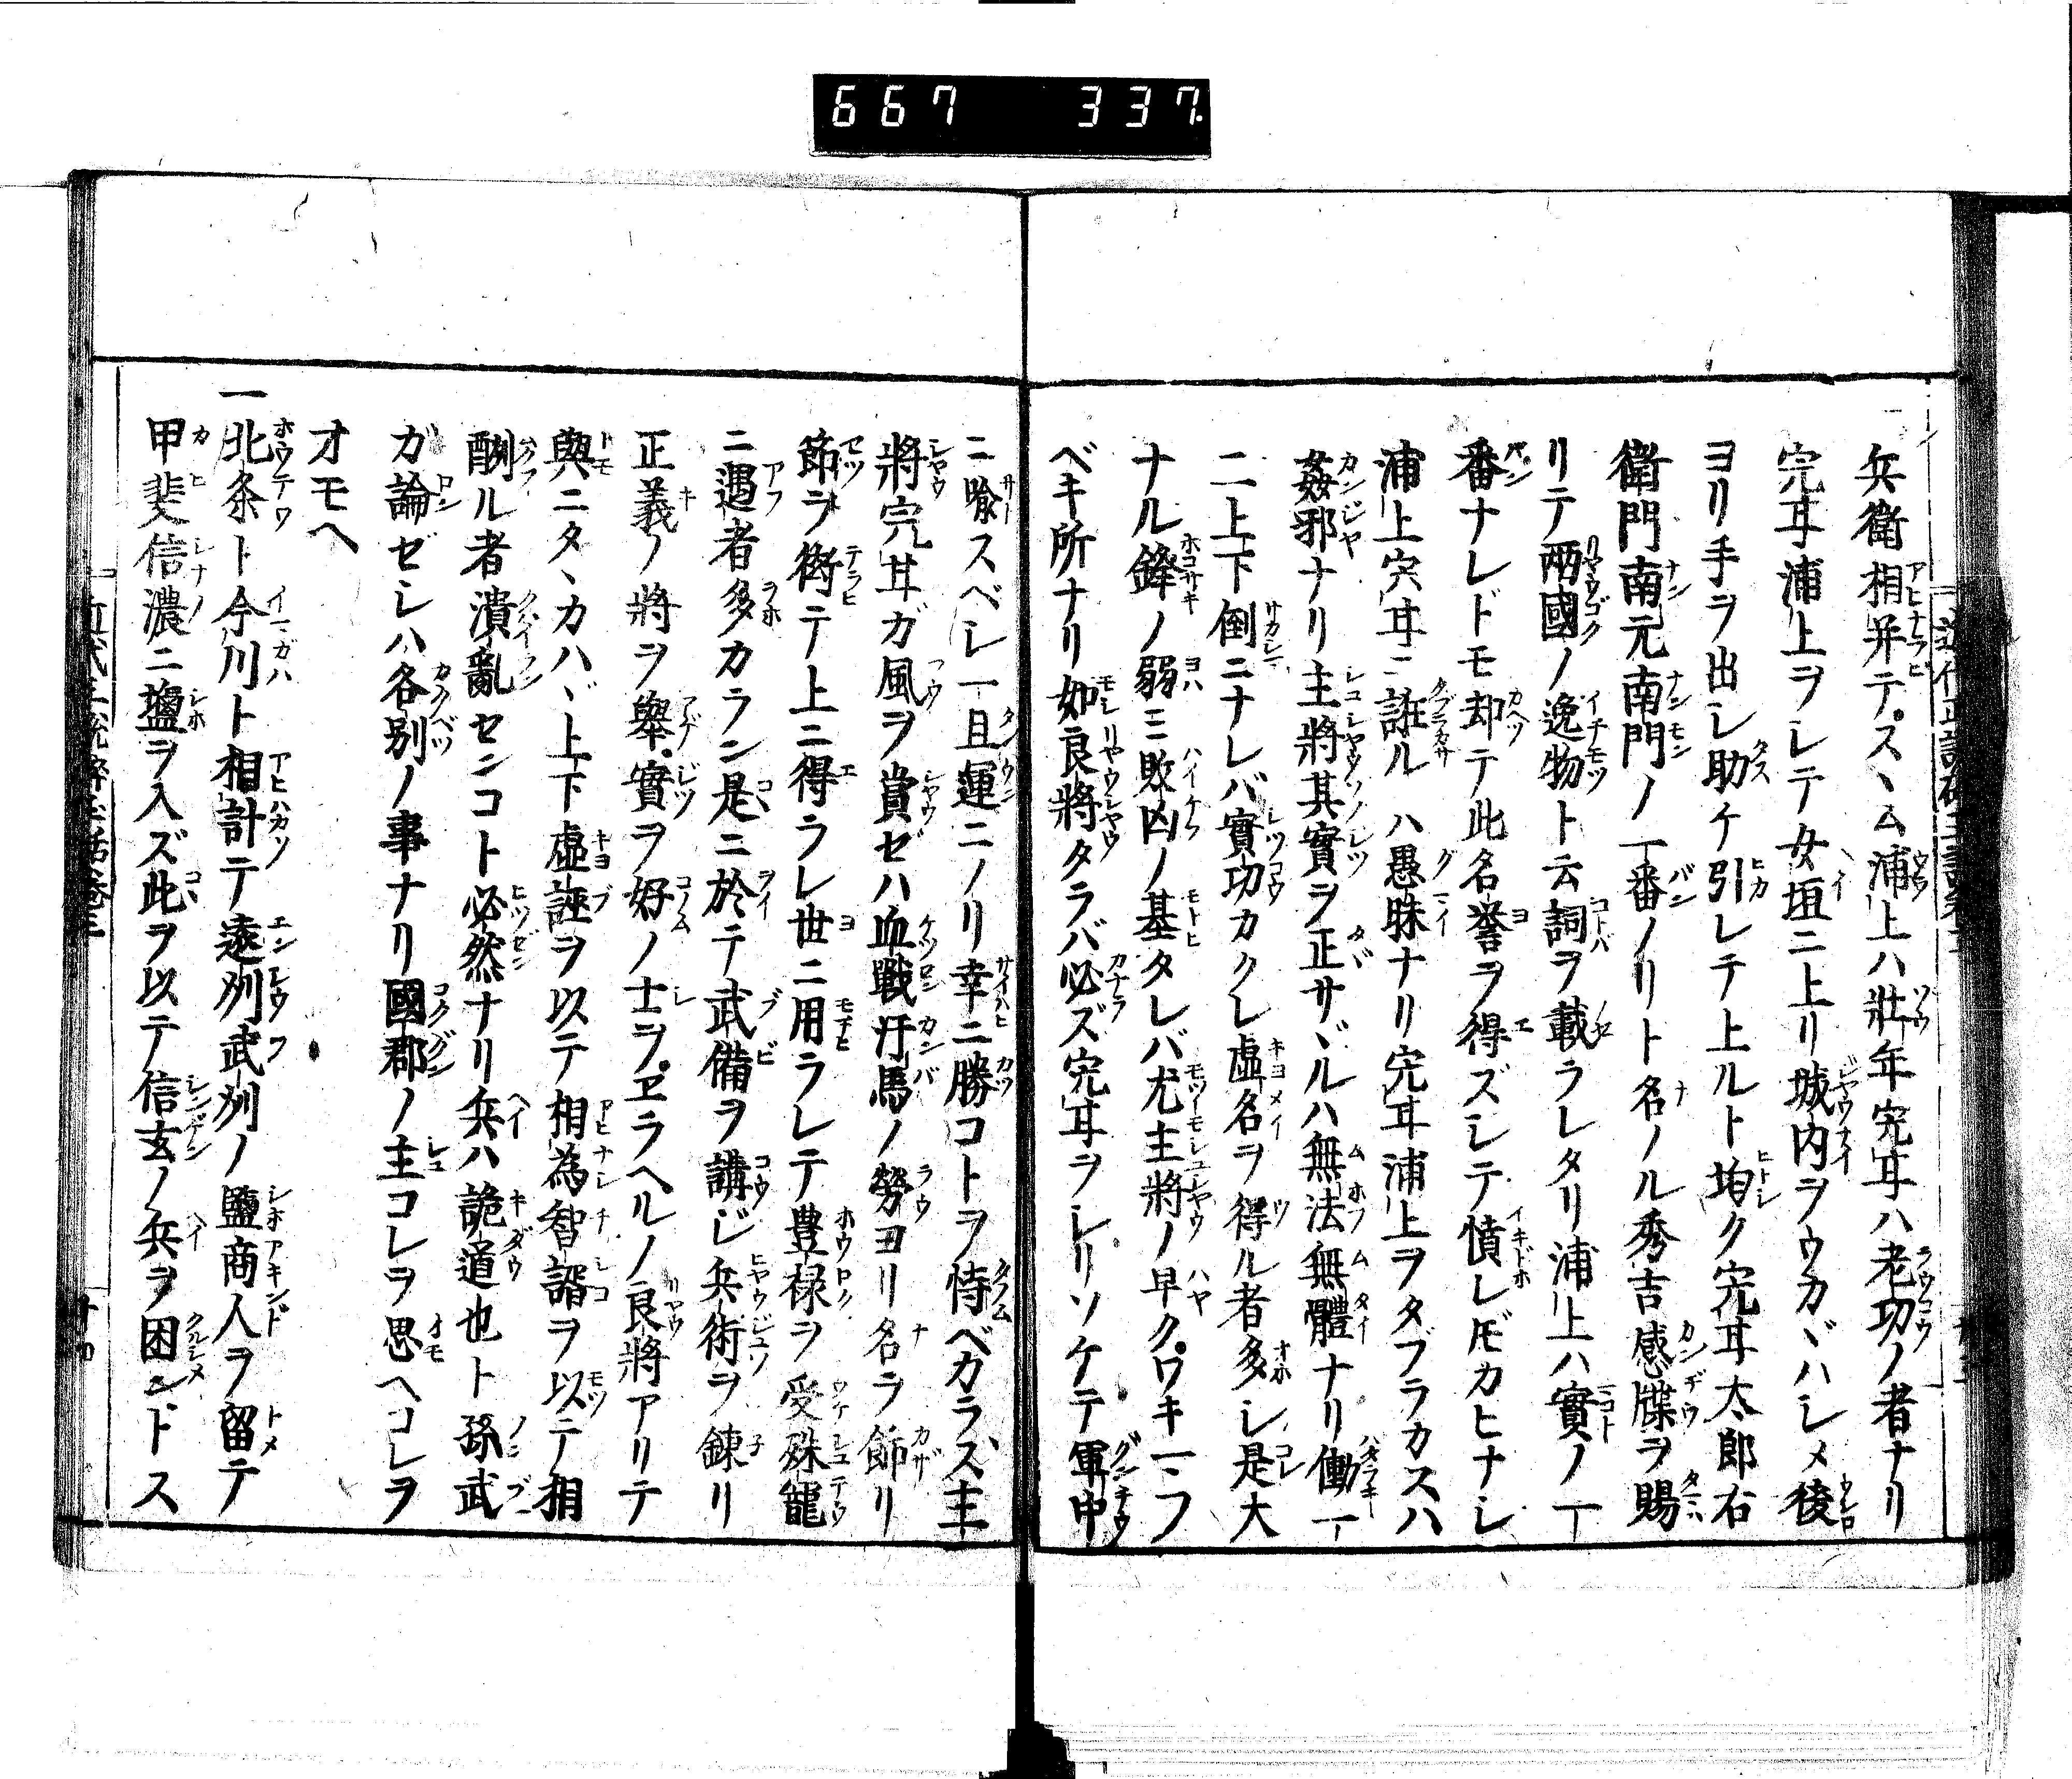 667 337.
兵衛相并テスヽム浦上ハ壯年宍耳ハ老功ノ者ナリ
宍耳浦上ヲシテ女垣ニ上リ城内ヲウカヾハシメ後
ヨリ手ヲ出シ助ケ引レテ上ルト均ク宍耳太郎右
衛門南元南門ノ一番ノリト名ノル秀吉感牒ヲ賜
リテ兩國ノ逸物ト云詞ヲ載ラレタリ浦上ハ實ノ一
番ナレドモ却テ此名誉ヲ得ズシテ憤レドモカヒナシ
浦上宍耳ニ誑ルハ愚昧ナリ宍耳浦上ヲタブラカスハ
姦邪ナリ主將其實ヲ正サヾルハ無法無體ナリ働一
二上下倒ニナレバ實功カクレ虚名ヲ得ル者多シ是大
ナル鋒ノ弱ミ敗凶ノ基タレバ尤主將ノ早クワキマフ
ベキ所ナリ如良將タラバ必ズ宍耳ヲシリソケテ軍中
ニ喩スベシ一旦運ニノリ幸ニ勝コトヲ恃ベカラズ主
將宍耳ガ風ヲ賞ゼハ血戰汗馬ノ勞ヨリ名ヲ飾リ
節ヲ衒テ上ニ得ラレ世ニ用ラレテ豊禄ヲ受殊寵
ニ遇者多カラン是ニ於テ武備ヲ講ジ兵術ヲ錬リ
正義ノ將ヲ擧實ヲ好ノ士ヲヱラヘルノ良將アリテ
與ニタヽカハヾ上下虚誣ヲ以テ相為智謟ヲ以テ相
酬ル者潰亂センコト必然ナリ兵ハ詭道也ト孫武
ガ論ゼシハ各別ノ事ナリ國郡ノ主コレヲ思ヘコレヲ
オモヘ
一北条ト今川ト相計テ遠州武州ノ鹽商人ヲ留テ
甲斐信濃ニ鹽ヲ入ズ此ヲ以テ信玄ノ兵ヲ困シメントス